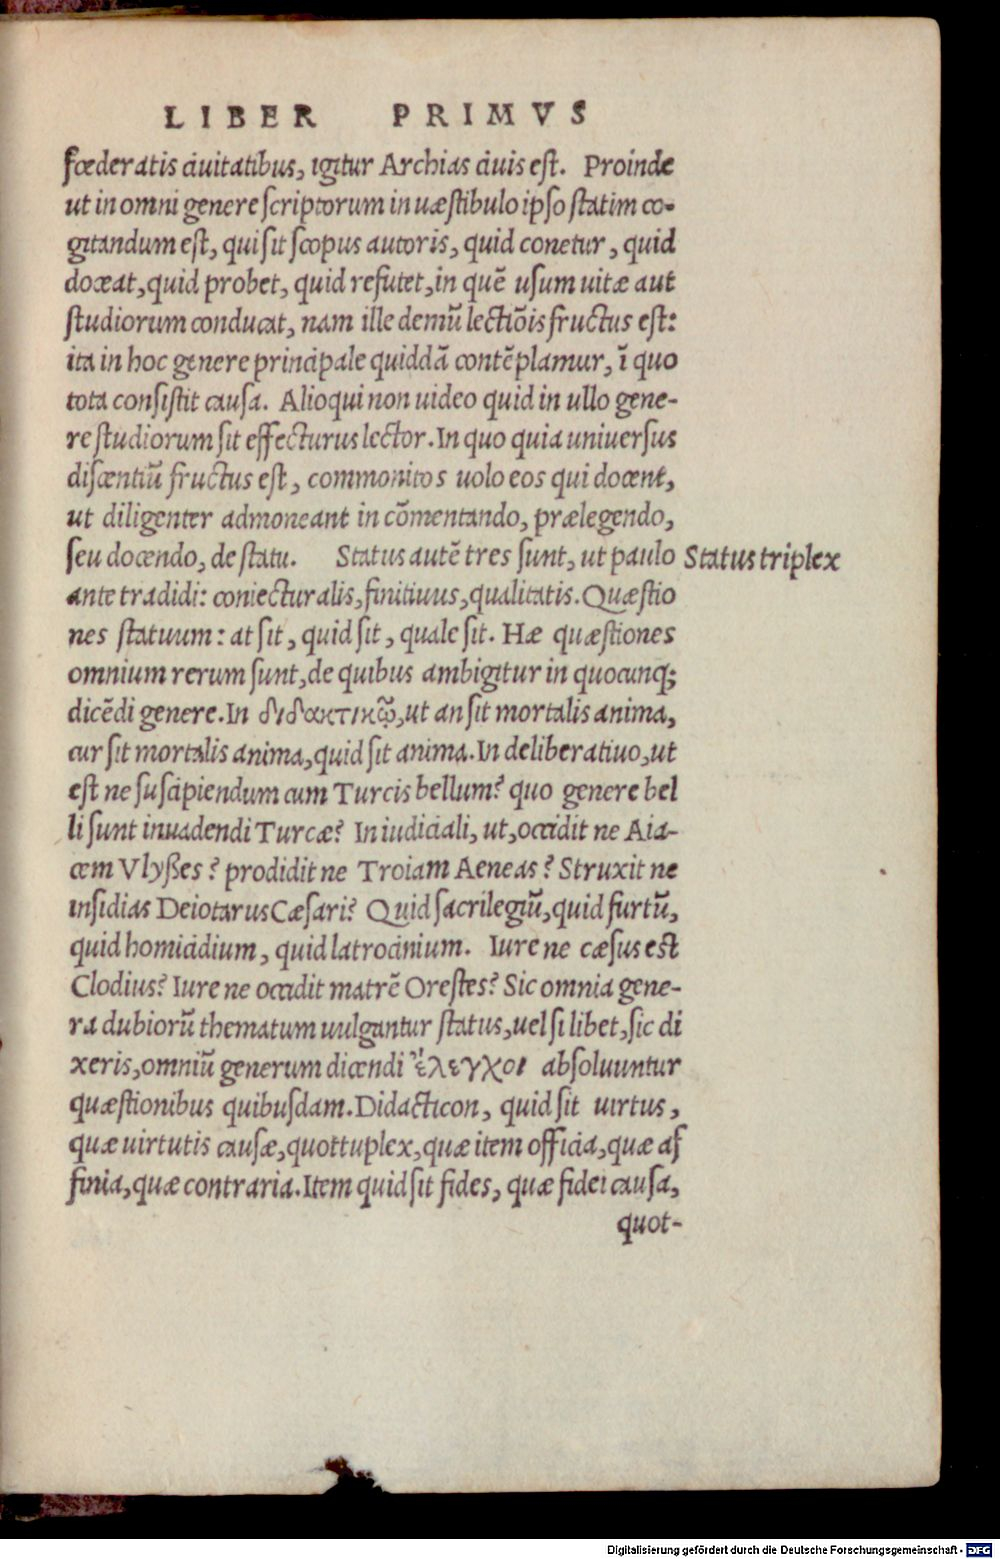 LIBER PRIMVS
fœderatis ciuitatibus, igitur Archias ciuis est. Proinde
ut in omni genere scriptorum in uæstibulo ipso statim co-
gitandum est, qui sit scopus autoris, quid conetur, quid
doceat, quid probet, quid refutet, in quẽ usum uitæ aut
studiorum conducat, nam ille demũ lectiõis fructus est:
ita in hoc genere principale quiddã contẽplamur, ĩ quo
tota consistit causa. Alioqui non uideo quid in ullo gene-
re studiorum sit effecturus lector. In quo quia uniuersus
discentiũ fructus est, commonitos uolo eos qui docent,
ut diligenter admoneant in cõmentando, prælegendo,
seu docendo, de statu. Status autẽ tres sunt, ut paulo
Status triplex
ante tradidi: coniecturalis, finitiuus, qualitatis. Quæstio
nes statuum: at sit, quid sit, quale sit. Hæ quæstiones
omnium rerum sunt, de quibus ambigitur in quocunq;
dicẽdi genere. In διδακτικῷ, ut an sit mortalis anima,
cur sit mortalis anima, quid sit anima. In deliberatiuo, ut
est ne suscipiendum cum Turcis bellum? quo genere bel
li sunt inuadendi Turcæ? In iudiciali, ut, occidit ne Aia-
cem Vlyßes? prodidit ne Troiam Aeneas? Struxit ne
insidias Deiotarus Cæsari? Quid sacrilegiũ, quid furtũ,
quid homicidium, quid latrocinium. Iure ne cæsus est
Clodius? Iure ne occidit matrẽ Orestes? Sic omnia gene-
ra dubiorũ thematum uulgantur status, uel si libet, sic di
xeris, omniũ generum dicendi ἔλεγχοι absoluuntur
quæstionibus quibusdam. Didacticon, quid sit uirtus,
quæ uirtutis causæ, quottuplex, quæ item officia, quæ af
finia, quæ contraria. Item quid sit fides, quæ fidei causa,
quot-
Digitalisierung gefördert durch die Deutsche Forschungsgemeinschaft - DFG